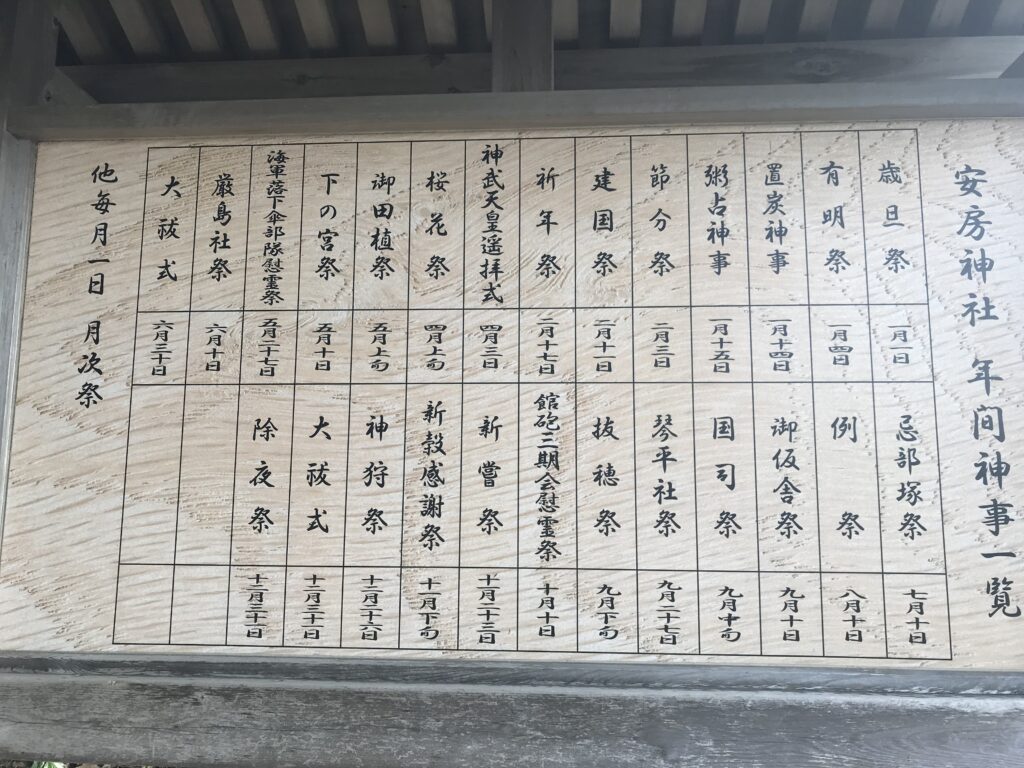 安房神社 年间神事一覧
歳旦祭 一月一日
有明祭 一月四日
置炭神事 一月十四日
粥占神事 一月十五日
節分祭 二月三日
建国祭 二月十一日
祈年祭 二月十七日
神武天皇遥拝式 四月三日
桜花祭 四月上旬
御田植祭 五月上旬
下の宮祭 五月十日
海軍落下傘部隊慰霊祭 五月二十七日
厳島社祭 六月十日
大祓式 六月三十日
忌部塚祭 七月十日
例祭 八月十日
御仮舎祭 九月十日
国司祭 九月中旬
琴平社祭 九月二十七日
抜穂祭 九月下旬
館砲三期会慰霊祭 十月十日
新嘗祭 十一月二十三日
新穀感謝祭 十一月下旬
神狩祭 十二月二十六日
大祓式 十二月三十一日
除夜祭 十二月三十一日
他毎月一日 月次祭